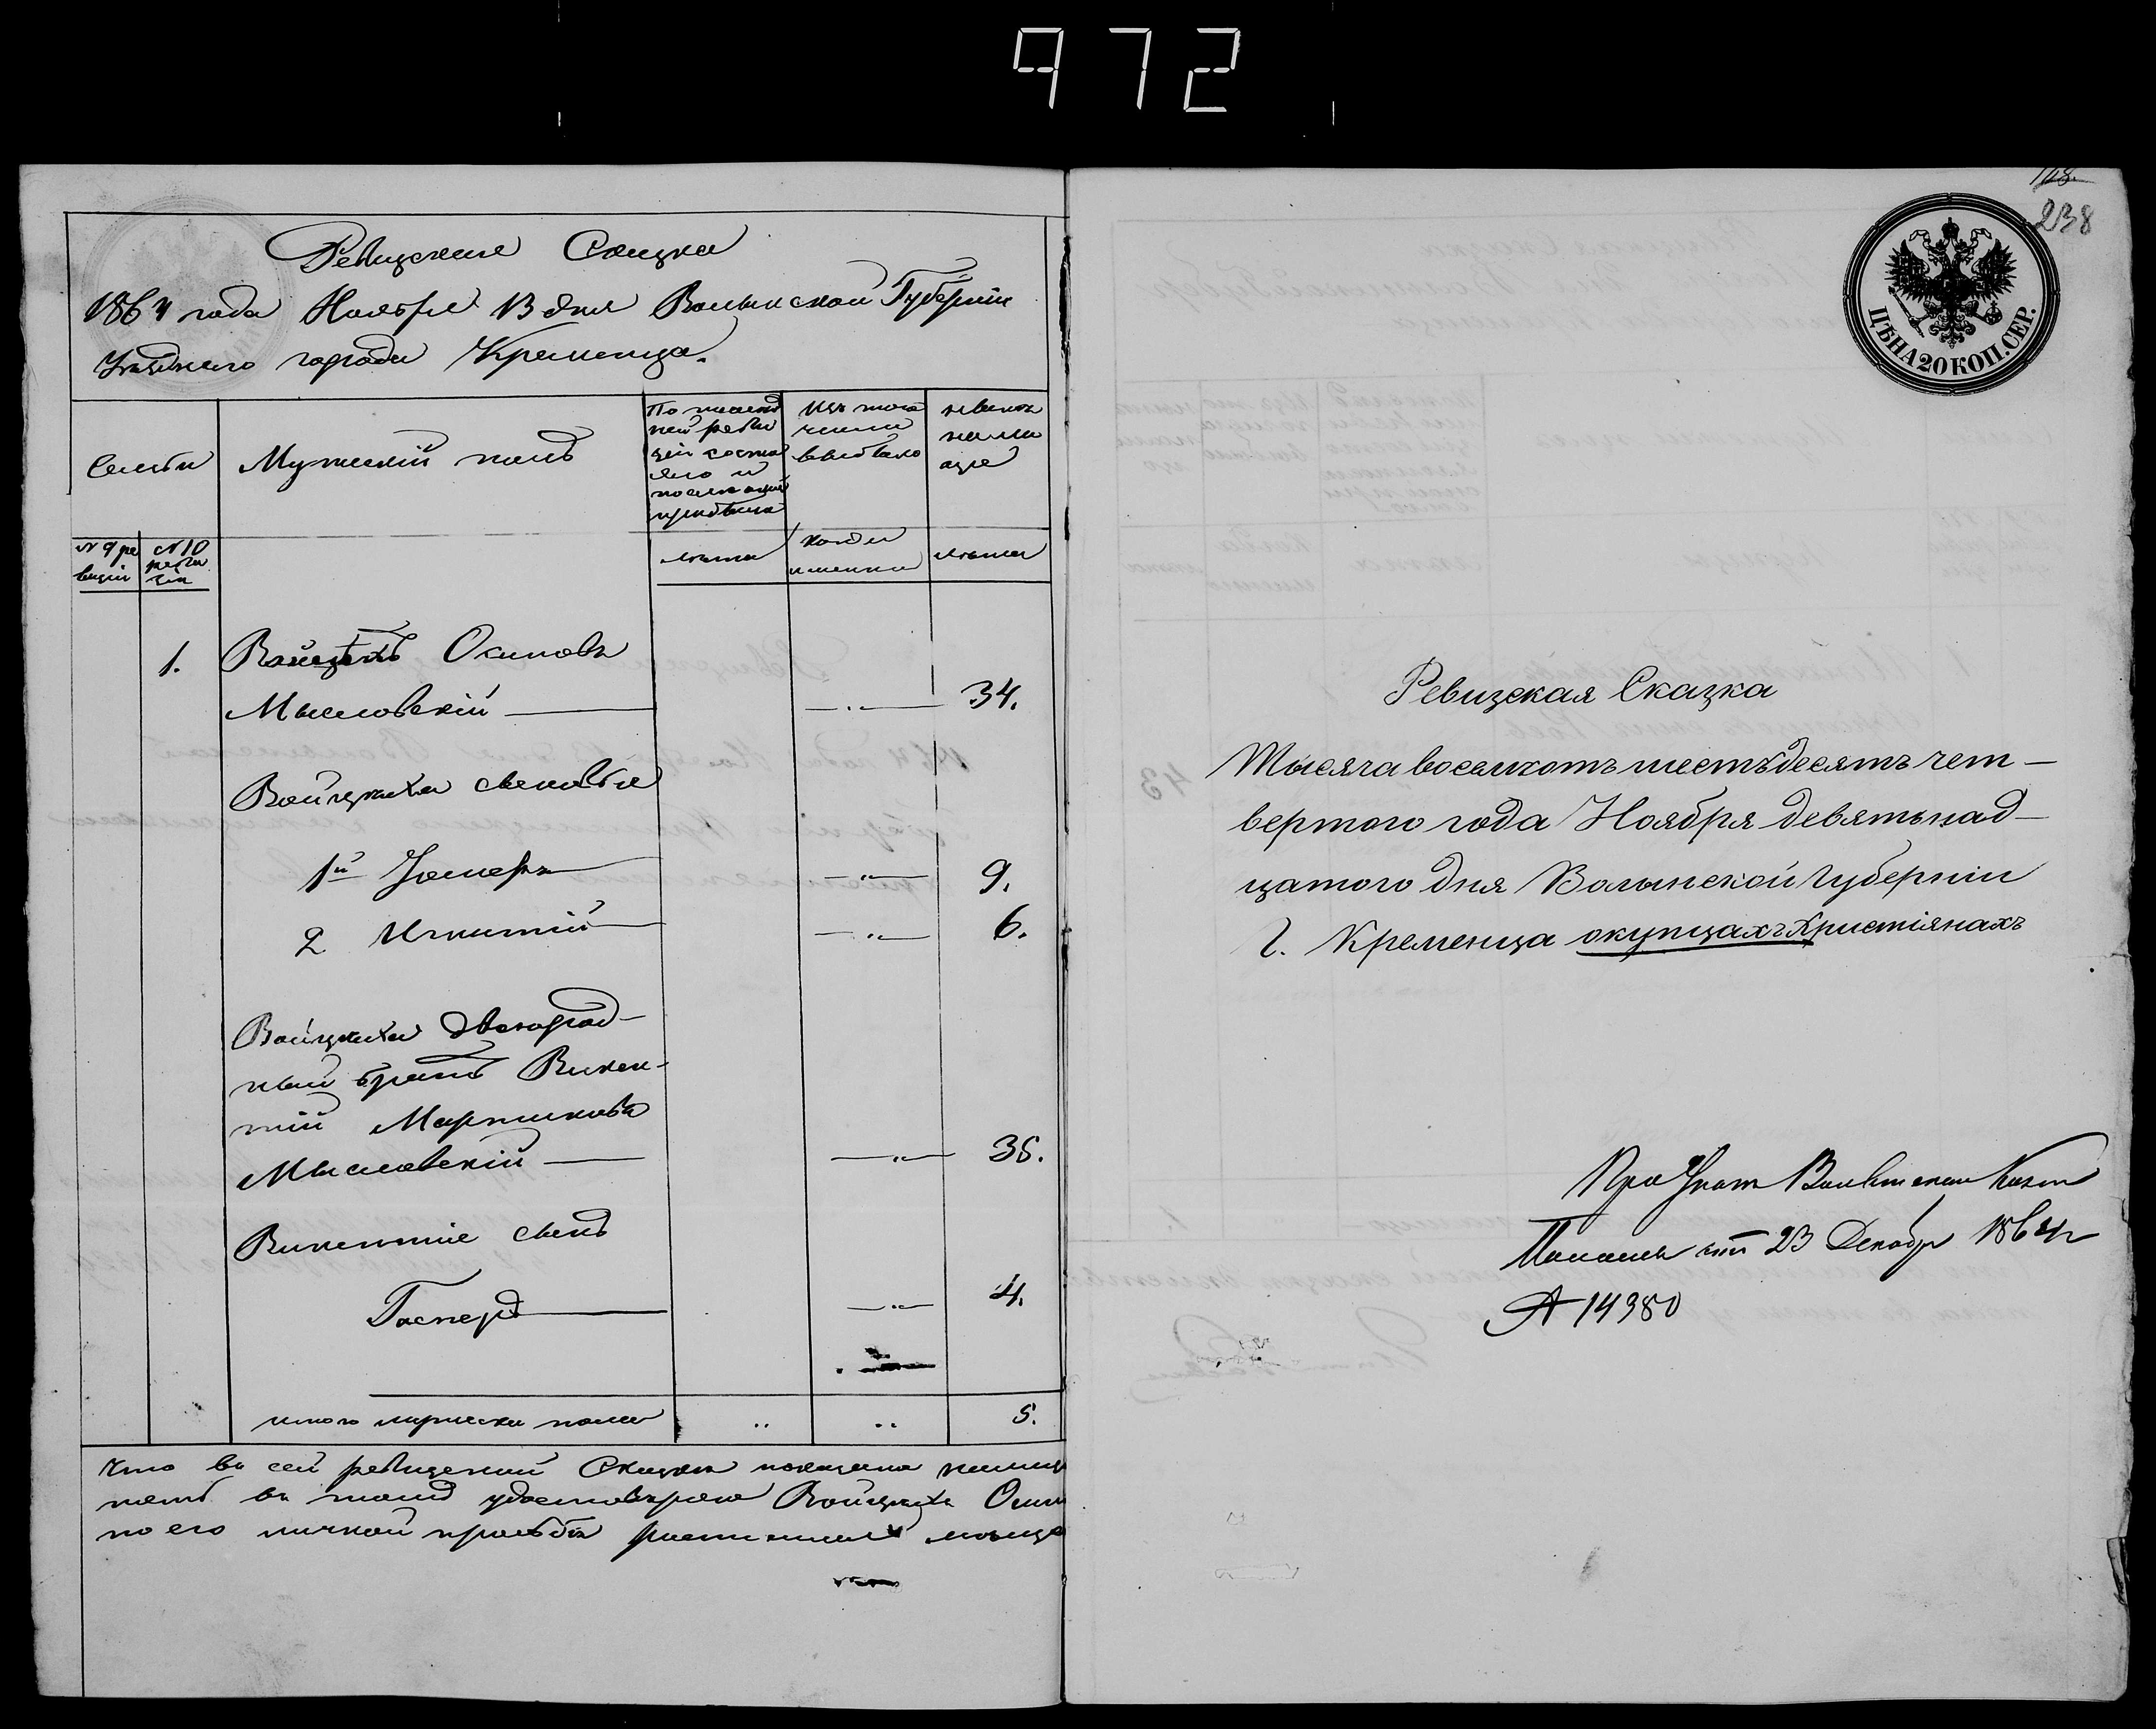 972
Ревизская Сказка
1864 года Ноября 13 дня Волынской Губернiи
Уѣзднаго города Кременца.
Семьи
Мужескiй полъ
По послѣд
ней реви
зiи состо
яло и
послѣ оной
прибыло
Изъ того
числа
выбыло
нынѣ
на ли
цо
N 9 ре
визiи
N 10
реви
зiи
лѣта
когда
именно
лѣта
1. Войцехъ Осиповъ
Мысловскiй 34.
Войцеха сыновья
1й Iосифъ 9.
2 Игнатiй 6.
Войцеха двоюрод-
ный братъ Викен-
тiй Мартиновъ
Мысловскiй 35.
Викентiе сынъ
Гасперъ 4.
итого мужеска пола 5.
Что въ сей ревизской Сказкѣ показана
въ томъ удостовѣряю Войцехъ
по его личной просьбѣ росписался
238
ЦѢНА 20 КОП. СЕР.
Ревизская Сказка
Тысяча восемсотъ шестьдесятъ чет-
вертого года Ноября девятьнад-
цатого дня Волынской Губернiи
Г. Кременца окупцахъ Христiянахъ
При Указѣ Волынской Казен
Палаты отъ 23 Декабр 1864 г
№ 14380